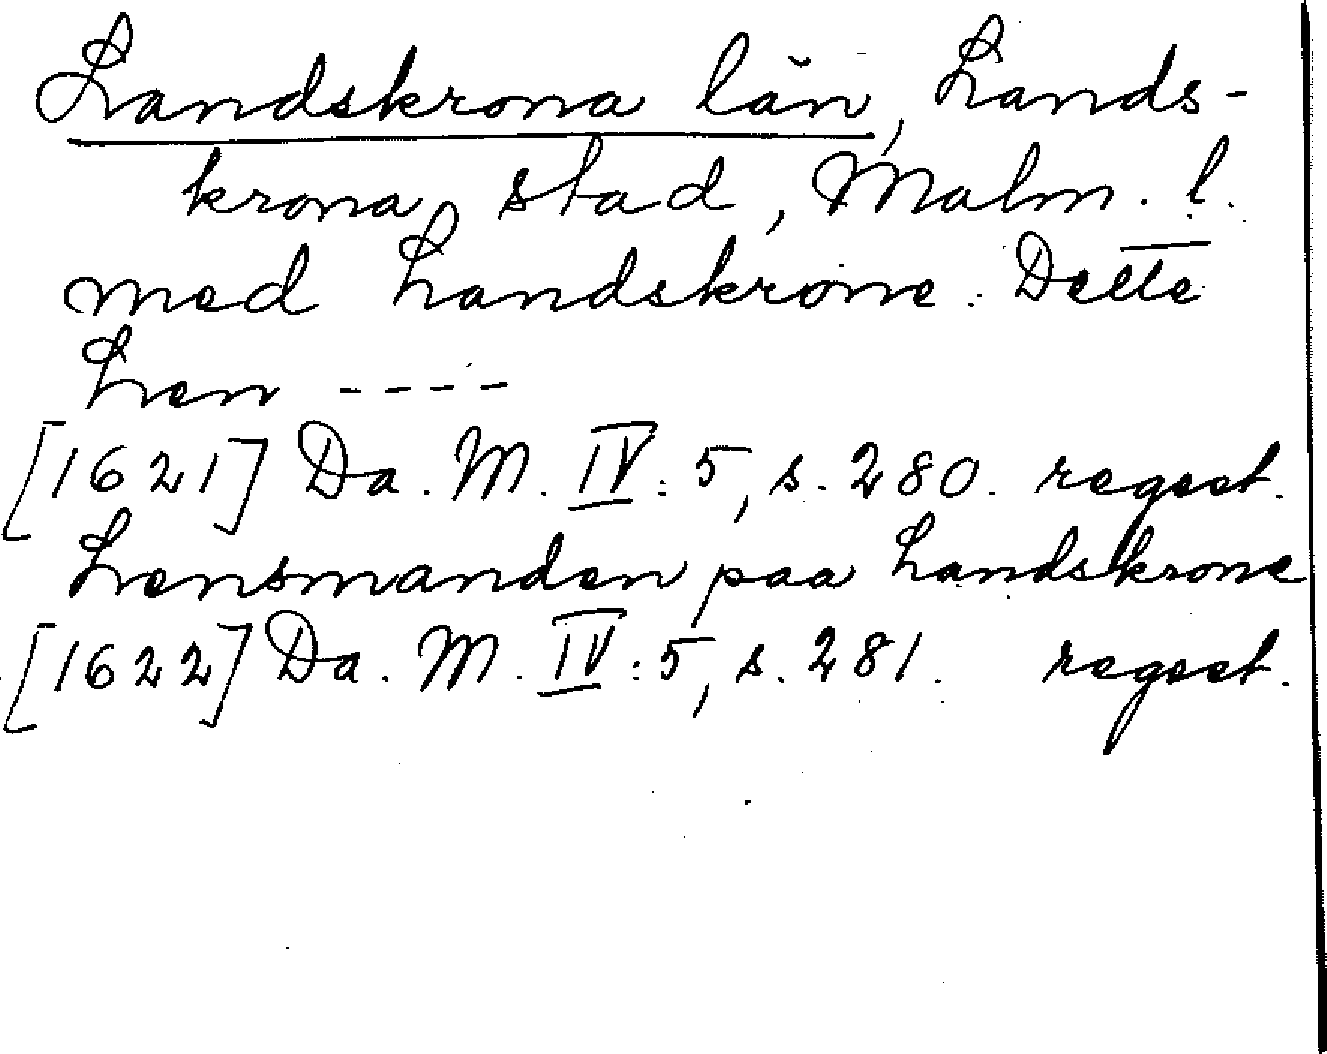 Landskrona län, Lands-
krona stad, Malm. l.
med Landskrone. Dette
Len ----
[1621] Da. M. IV: 5, s. 280. regest.
Lensmanden paa Landskrone
[1622] Da. M. IV: 5, s. 281. regest.